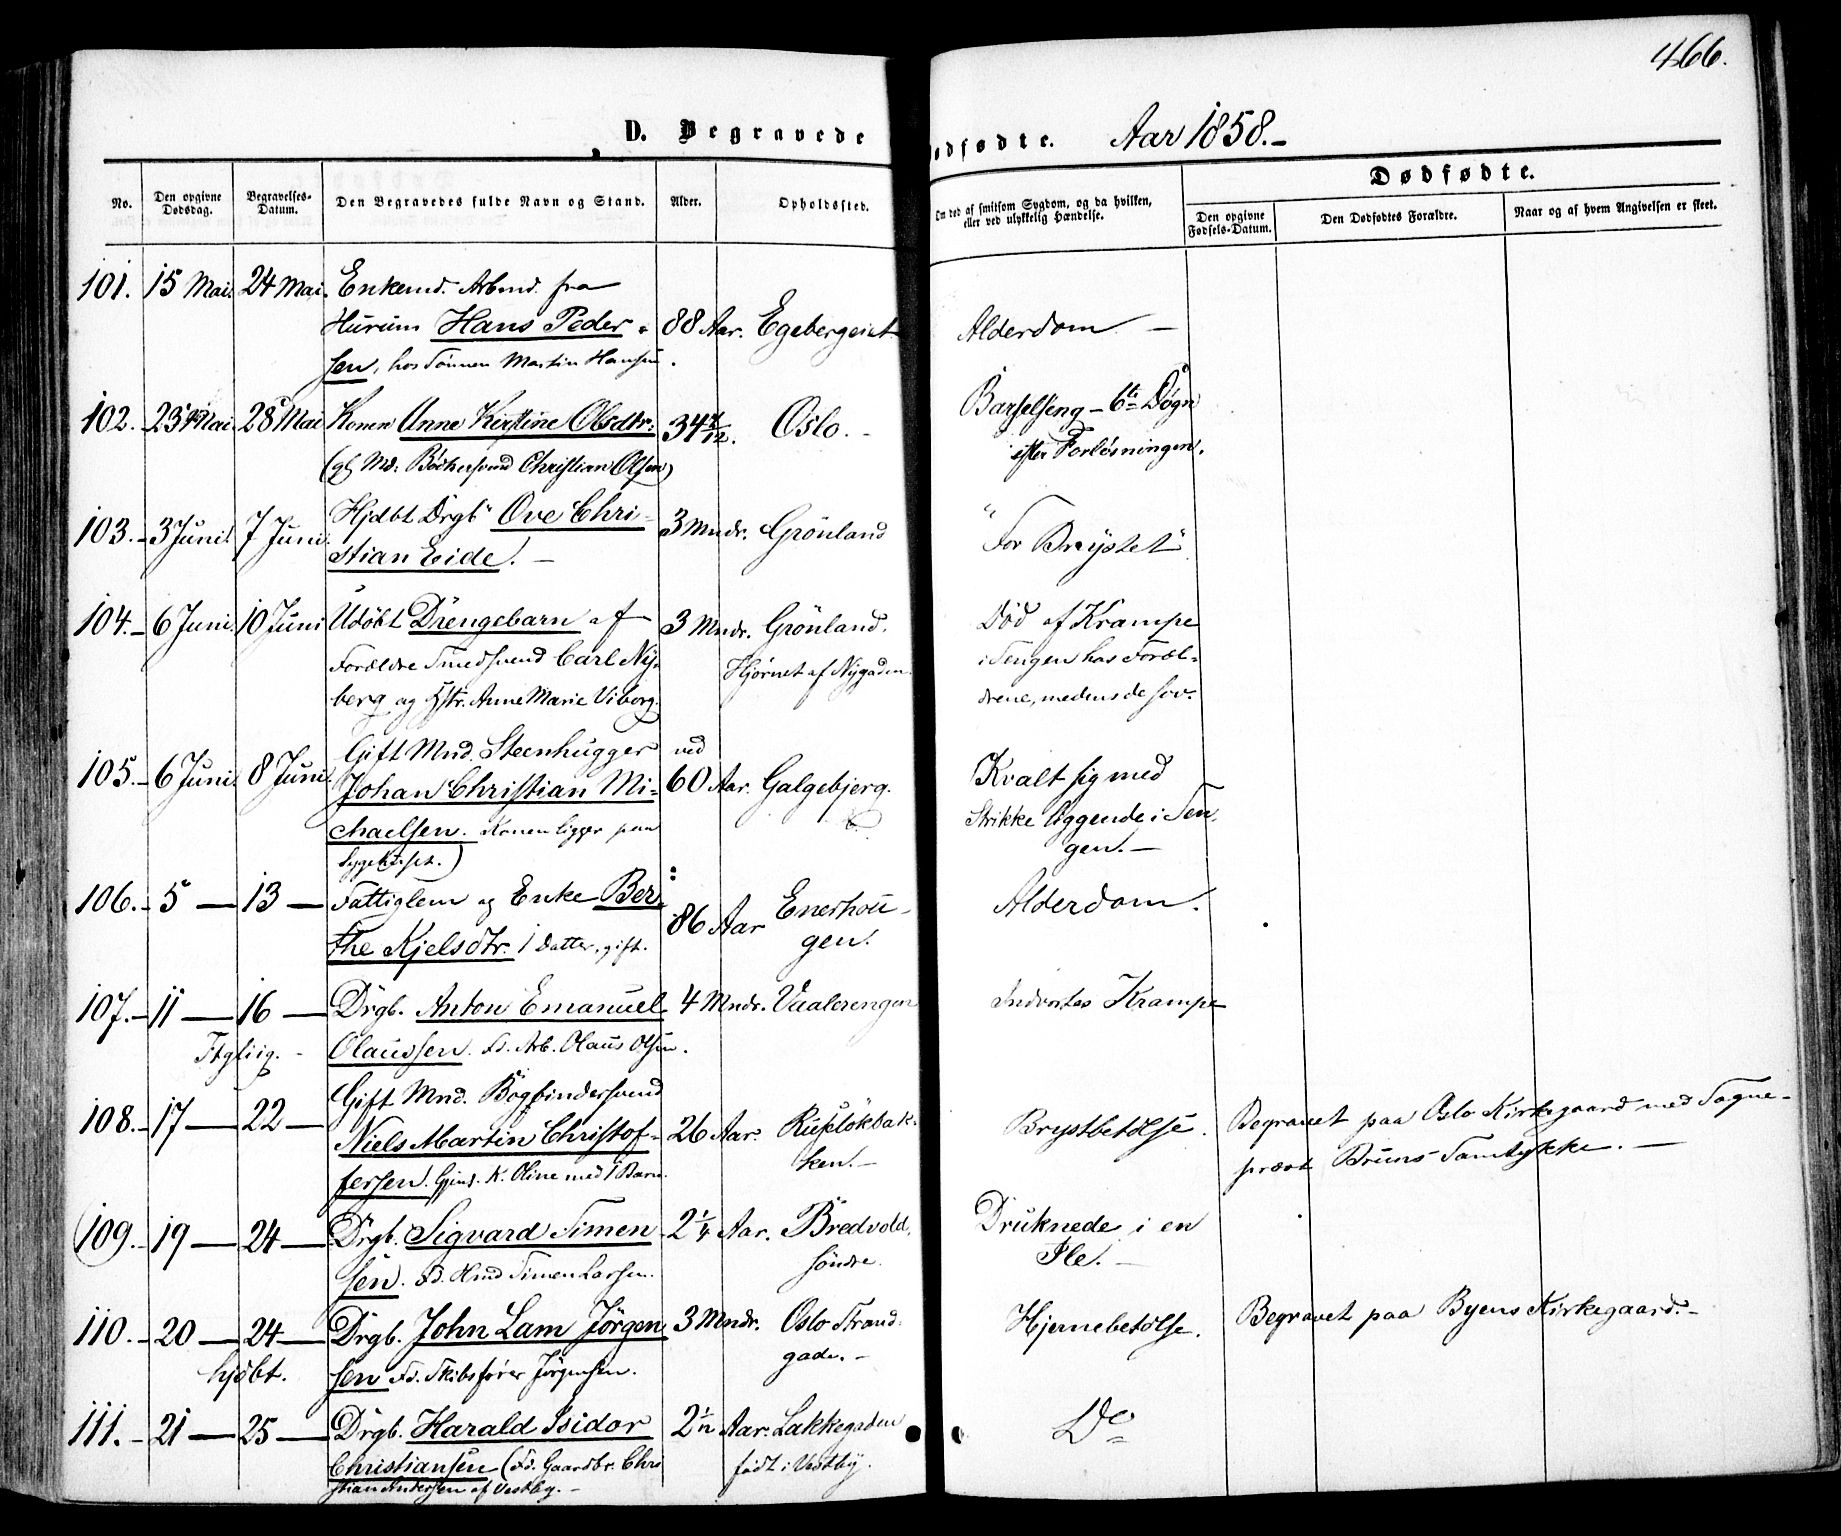 466.
D. Begravede
ødfødte. Aar 1858.-
Dødfødte.
No.
Den opgivne Dødsdag.
Begravelses-Datum.
Den Begravedes fulde Navn og Stand.
Alder.
Opholdssted.
Om død af smitsom Sygdom, og da hvilken,
eller ved ulykkelig Hændelse.
Den opgivne Fødsels-Datum.
Den Dødfødtes Forældre.
Naar og af hvem Angivelsen er skeet.
101. 15 Mai. 24 Mai. Enkemd. Arbmd. fra
Hurum Hans Peder- 88 Aar. Egebergeiet Alderdom. -
sen, hos Sønnen Martin Hansen.
102. - 23 Mai 28 Mai Konen Anne Kirstine Olsdtr: 34 7/12. Oslo. - Barselseng - 6te Døgn
(gl Md: Bödkersvend Christian Olsen) efter Forløsningen.
103. - 3 Juni. 7 Juni. Hjdbt Drgb Ove Chri- 3 Mndr. Grönland "For Brystet"
stian Eide. -
104. - 6 Juni. 10 Juni Udøbt Drengebarn af 3 Mndr. Grönland. Död af Krampe
Forældre Smedsvend Carl Ny- Hjörnet af Nygaden. i Sengen hos Foræl-
berg og Hstr. Anne Marie Viborg. drene, medens de sov.
105. - 6 Juni. 8 Juni. Gift Mnd. Steenhugger ved
Johan Christian Mi- 60 Aar. Galgebjerg. Kvalt sig med
chaelsen. Konen ligger paa Strikke liggende i Sen-
Sygehuset.) gen. -
106. - 5 - 13 - Fattiglem og Enke Ber- 86 Aar Enerhou- Alderdom.
the Kjelsdtr. 1 Datter, gift. gen.
107. - 11 - 16 - Drgb. Anton Emanuel 4 Mndr. Vaalerengen Indvortes Krampe
Olaussen. Fd. Arb. Olaus Olsen.
108. - 17 - 22 - Gift Mnd. Bogbindersvend
Niels Martin Christof- 26 Aar. Rufslökbak- Brystbetolse. Begravet paa Oslo Kirkegaard med Sogne-
fersen. K. Oline med 1 Barn. ken. - præst Bruns Samtykke. -
109. - 19 - 24 - Drgb. Sigvard Simen 2 1/4 Aar. Bredvold, Druknede i en
sen. Fd. Hmd Simen Larsen. söndre. Ile. -
110. - 20 - 24 - Drgb. John Lam Jörgen 3 Mndr. Oslo Strand- Hjernebetolse. Begravet paa Byens Kirkegaard. -
hjdbt. sen Fd. Skibsfører Jörgensen. gade. -
111. - 21 - 25 - Drgb. Harald Isidor 2 1/2 Aar. Lakkegaden Do
Christiansen (Fd. Gaardbr. Chri födt i Vestby.
stian Andersen af Vestby. -